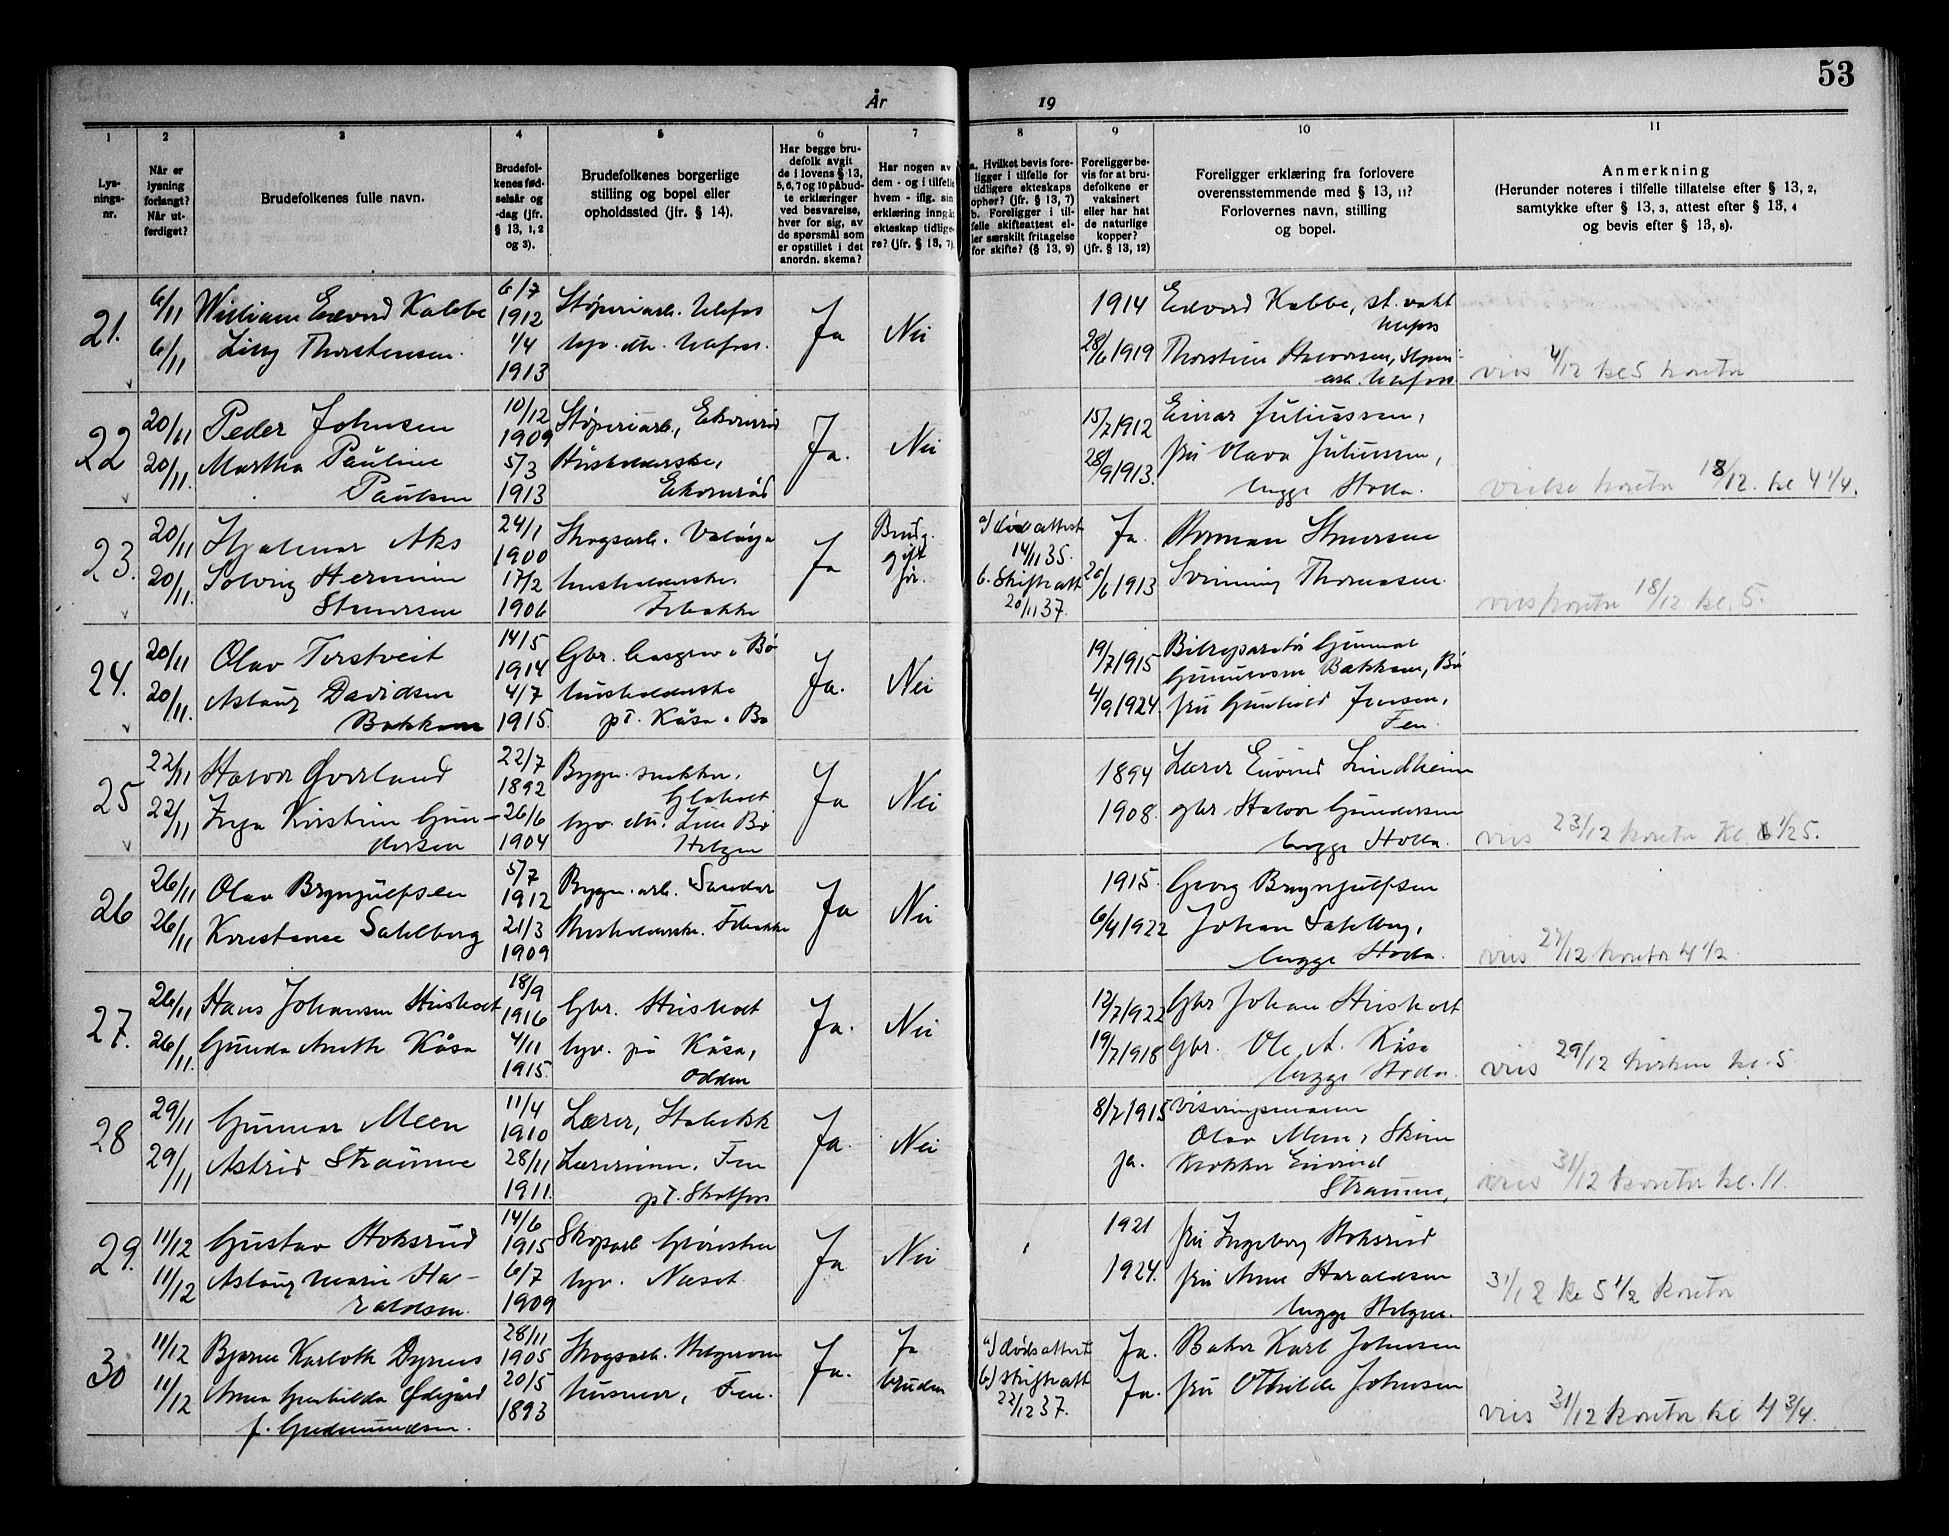 53
År
19
1
2
3
4
5
6
7
8
9
10
11
Lys-
nings-
nr.
Når er
lysning
forlangt?
Når ut-
ferdiget?
Brudefolkenes fulle navn.
Brudefol-
kenes fød-
selsår og
-dag (jfr.
§ 13, 1, 2
og 3).
Brudefolkenes borgerlige
stilling og bopel eller
opholdssted (jfr. § 14).
Har begge bru-
defolk avgit
de i lovens § 13,
5, 6, 7 og 10 påbud-
te erklæringer
ved besvarelse,
hver for sig, av
de spørsmål som
er opstillet i det
anordn. skema?
Har nogen av
dem - og i tilfelle
hvem - iflg. sin
erklæring inngåt
ekteskap tidlige-
re? (jfr. § 13, 7).
a. Hvilket bevis fore-
ligger i tilfelle for
tidligere ekteskaps
ophør? (jfr. § 13, 7)
b. Foreligger i til-
felle skifteattest el-
ler særskilt fritagelse
for skifte? (§ 13, 9)
Foreligger be-
vis for at bru-
defolkene er
vaksinert
eller har hat
de naturlige
kopper?
(jfr. § 13, 12)
Foreligger erklæring fra forlovere
overensstemmende med § 13, 11?
Forlovernes navn, stilling
og bopel.
Anmerkning
(Herunder noteres i tilfelle tillatelse efter § 13, 2,
samtykke efter § 13, 3, attest efter § 13, 4
og bevis efter § 13, 8).
21.
6/11
6/11
William Edvard Kabbe
Lilly Thorstensen.
6/7
1912
1/4
1913
Støperiarb. Ulefos
hjv. dtr. Ulefoss.
Ja
Nei
1914
28/6 1919
Edvard Kabbe, st. vakt
Ulefos
Thorstein Halvorsen, støperi-
arb. Ulefoss
vies 4/12 kl 5 kontor
22
20/11
20/11.
Peder Johnsen
Martha Pauline
Paulsen
10/12
1909
5/3
1913
Støperiarb., Ekornrød
Husholderske,
Ekornrød
Ja.
Nei
15/7 1912
28/9 1913.
Einar Juliussen,
fru Olava Juliussen,
begge Holla.
vielse kontor 18/12. kl 4 1/4.
23.
20/11
20/11.
Hjalmar Aks
Solveig Hermine
Steversen
24/1
1900
17/2
1906
Skogsarb. Valåsja
husholderske.
Febakke
Ja
Brudg.
gift
før.
a) dødsattest
14/11 35.
b. Skifteatt
20/11 37.
Ja.
20/6 1913
Svinning Thomassen.
vies kontor 18/12 kl. 5.
24.
20/11
20/11.
Olav Torstveit
Aslaug Davidsen
Bakken
14/5
1914
4/7
1915.
Gbr. Aasgrav i Bø
husholderske
pt. Kåsa i Bø
Ja.
Nei
19/7 1915
4/9 1924.
Bilreparatør Gunnar
Gunnarson Bakken, Bø
fru Gunhild Jensen,
Fen.
25
22/11
22/11
Halvor Gvarland
Inga Kirstine Gun-
dersen
22/7
1892
26/6
1904
Bygn. snekker.
Glaholt
hjv. dtr. Lille Bø
Helgen
Ja
Nei
1894
1908.
Lærer Eivind Lindheim
gbr Halvor Gundersen
begge Holla.
vies 23/12 kontor kl 1/25.
26
26/11
26/11
Olav Brynjulfsen
Konstanse Sahlberg
5/7
1912
21/3
1909
Bygn. arb. Sandar
Husholderske. Febakke
Ja
Nei
1915.
6/4 1922
Georg Brynjulfsen
Johan Sahlberg,
begge Holla.
vies 27/12 kontor 4 1/2.
27.
26/11
26/11.
Hans Johansen Hisholt
Gunda Anette Kåsa
18/9
1916
4/11
1915.
Gbr. Hisholt
hjv. på Kåsa,
Odden
Ja.
Nei
12/7 1922
19/7 1918
Gbr Johan Hisholt
Gbr. Ole A. Kåsa
begge Holla.
vies 29/12 kirken kl. 5
28
29/11
29/11
Gunnar Meen
Astrid Straume
11/4
1910
28/11
1911.
Lærer, Stabekk
Lærerinne. Fen
pt. Skotfoss
Ja.
Nei
8/7 1915
ja.
Viseringsmann
Olav Meen, Skien
Snekker Eivind
Straume,
vies 31/12 kontor kl. 11.
29.
11/12
11/12
Gustav Hoksrud
Aslaug Marie Ha-
raldsen.
14/6
1915
6/7
1909
Skogsarb Grønstein
hjv. Næset
Ja
Nei
1921
1924.
fru Ingeborg Hoksrud
fru Anne Haraldsen
begge Helgen.
31/12 kl 5 1/2 kontor
30
11/12
11/12
Bjarne Karloth Dyrnes
Anna Gunhilda Ødegård
f. Gudmundsen.
28/11
1905
20/5
1893
Skogsarb. Helgeroa
husmor, Fen.
Ja.
Ja
bruden
a) dødsattest
b) skifteatt
22/12 37.
Ja.
Ja.
Baker Karl Johnsen
fru Othilde Johnsen
vies 31/12 kontor kl 4 3/4.